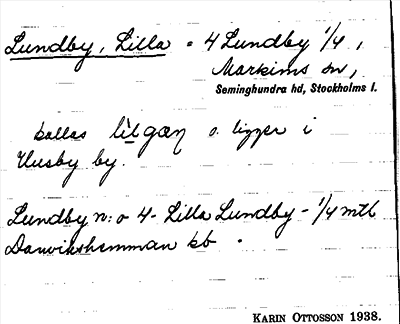 Lundby, Lilla = 4 Lundby 1/4,
Markims sn,
Seminghundra hd, Stockholms l.
kallas lilgän o. ligger i
Husby by.
Lundby n:o 4 - Lilla Lundby - 1/4 mtl
Danvikshemman kb.
KARIN OTTOSSON 1938.